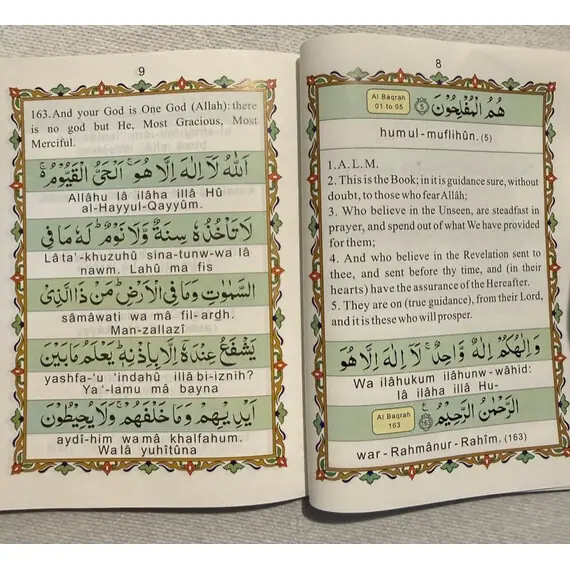 8
Al Baqrah
01 to 05
هُمُ الْمُفْلِحُوْنَ ﴿5﴾
humul-muflihûn. (5)
1. A.L.M.
2. This is the Book; in it is guidance sure, without
doubt, to those who fear Allâh;
3. Who believe in the Unseen, are steadfast in
prayer, and spend out of what We have provided
for them;
4. And who believe in the Revelation sent to
thee, and sent before thy time, and (in their
hearts) have the assurance of the Hereafter.
5. They are on (true guidance), from their Lord,
and it is these who will prosper.
وَاِلٰهُكُمْ اِلٰهٌ وَّاحِدٌ ۚ لَآ اِلٰهَ اِلَّا هُوَ
Wa ilâhukum ilâhunw-wâhid:
lâ ilâha illâ Hu-
الرَّحْمٰنُ الرَّحِيْمُ ﴿163﴾
Al Baqrah
163
war-Rahmânur-Rahîm. (163)
9
163. And your God is One God (Allah): there
is no god but He, Most Gracious, Most
Merciful.
اَللّٰهُ لَآ اِلٰهَ اِلَّا هُوَ ۚ اَلْحَىُّ الْقَيُّوْمُ ۚ
Allâhu lâ ilâha illâ Hû
al-Hayyul-Qayyûm.
لَا تَاْخُذُهٗ سِنَةٌ وَّلَا نَوْمٌ ؕ لَهٗ مَا فِى
Lâta'-khuzuhû sina-tunw-wa lâ
nawm. Lahû ma fis
السَّمٰوٰتِ وَمَا فِى الْاَرْضِ ؕ مَنْ ذَا الَّذِىْ
sâmâwati wa mâ fil-ardh.
Man-zallazî
يَشْفَعُ عِنْدَهٗٓ اِلَّا بِاِذْنِهٖ ؕ يَعْلَمُ مَا بَيْنَ
yashfa-'u 'indahû illâ bi-iznih?
Ya'-lamu mâ bayna
اَيْدِيْهِمْ وَمَا خَلْفَهُمْ ۚ وَلَا يُحِيْطُوْنَ
aydî-him wa mâ khalfahum.
Walâ yuhîtûna